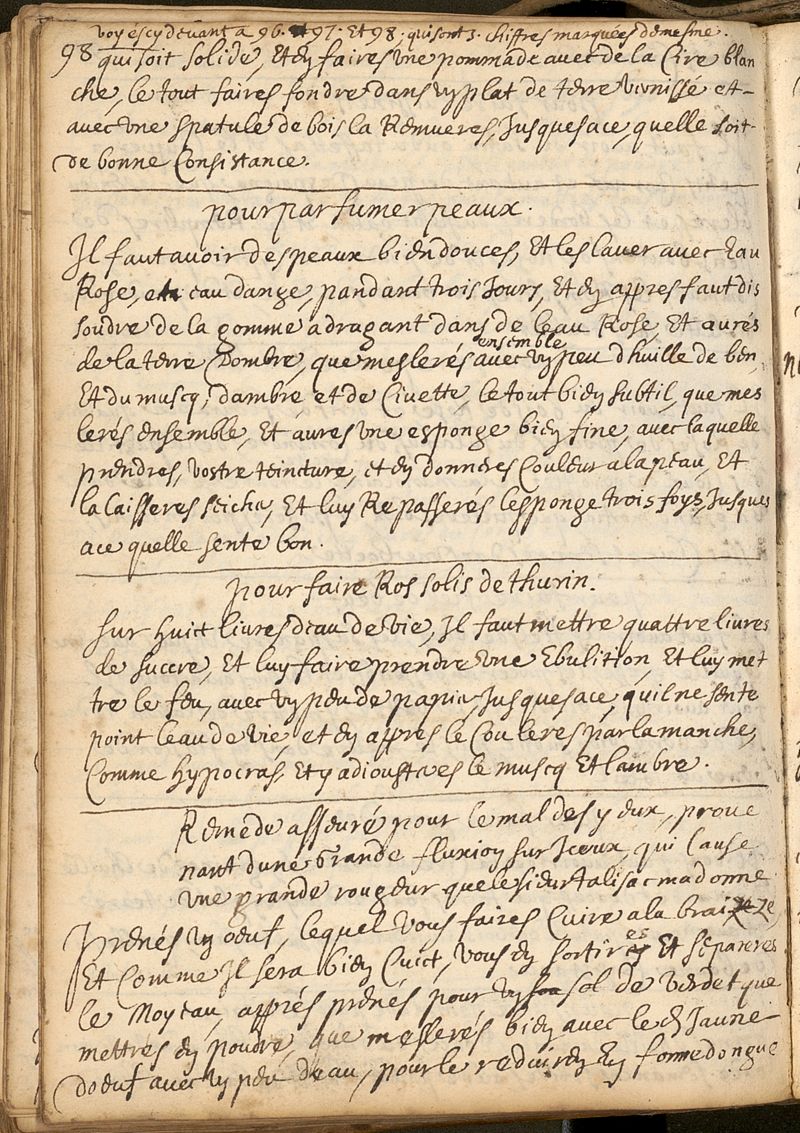 voyés cy devant a 96. et 97. Et 98. qui sont 3. chiffres marquées de mesme.
98 qui soit solide, Et en faires une pommade avec de la Cire blan
che, le tout faires fondre dans un plat de terre vernissé et
avec une spatule de bois la Remueres, Jusques ace, quelle soit
de bonne Consistance.
pour parfumer peaux.
Il faut avoir des peaux bien douces, Et les laver avec Eau
Rose, et eau dange, pandant trois Jours, Et en appres faut dis
soudre de la gomme adragant dans de leau Rose, Et aurés
de la terre Dombre, que meslerés ensemble avec un peu dhuille de ben,
Et du muscq, dambre et de Civette, le tout bien subtil, que mes
lerés ensemble, Et aures une esponge bien fine, avec laquelle
prendres, vostre teincture, et en donneres Couleur a la peau, Et
la laisseres seicher, Et luy Repasserés lesponge trois foys, Jusques
ace quelle sente bon.
pour faire Ros solis de thurin.
sur huict livres deau de vie, Il faut mettre quattre livres
de succre, Et luy faire prendre une Ebulition, Et luy met
tre le feu, avec un peu de papier, Jusques ace, quil ne sente
point leau de vie, et en appres le Couleres par la manche,
Comme hypocras, Et y adiousteres le muscq Et lambre.
Remede asseuré pour le mal des yeux, prove
nant dune Grande fluxion sur Iceux, qui Cause
une grande rougeur que le sieur talisac madonné
Prenés un oeuf, lequel vous faires Cuire a la braize
Et Comme Il sera bien Cuict, vous en sortires Et separeres
le Moyeau, apprés prenés pour un sol de verdet que
mettres en poudre, que meslerés bien avec led Jaune
doeuf avec un peu deau, pour le reduire en forme dongue